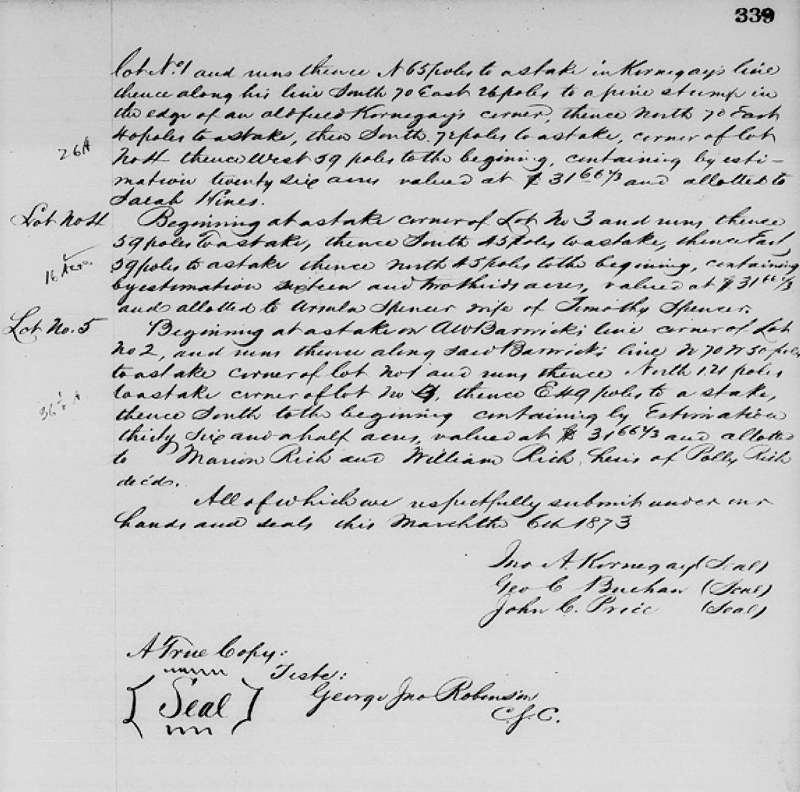 339
lot No 1 and runs thence N 65 poles to a stake in Kornegay's line
thence along his line South 70 East 26 poles to a pine stump in
the edge of an old field Kornegay's corner, thence North 70 East
40 poles to a stake, then South 72 poles to a stake, corner of lot
26 A
No 4 thence West 59 poles to the begining, containing by esti-
mation twenty six acres valued at $31 66 2/3 and allotted to
Sarah Hines.
Lot No 4
Beginning at a stake corner of Lot No 3 and runs thence
59 poles to a stake, thence South 45 poles to a stake, thence East
16 Acre.
59 poles to a stake thence north 45 poles to the begining, containing
by estimation sixteen and two thirds acres, valued at $31 66 2/3
and allotted to Ursula Spencer wife of Timothy Spencer.
Lot No. 5
Beginning at a stake on AW Barwick's line corner of Lot
No 2, and runs thence along said Barwick's line N 70 W 50 poles
to a stake corner of lot No 1 and runs thence North 121 poles
to a stake corner of lot No 4, thence E 49 poles to a stake,
36 1/2 A
thence South to the beginning containing by Estimation
thirty six and a half acres, valued at $31 66 2/3 and allotted
to Marion Rich and William Rich, heirs of Polly Rich
decd.
All of which we respectfully submit under our
hands and seals this March the 6th 1873
Jno A. Kornegay (Seal)
Geo C Buchan (Seal)
John C. Price (Seal)
A True Copy:
Teste:
{Seal}
George Jno Robinson
C.S.C.